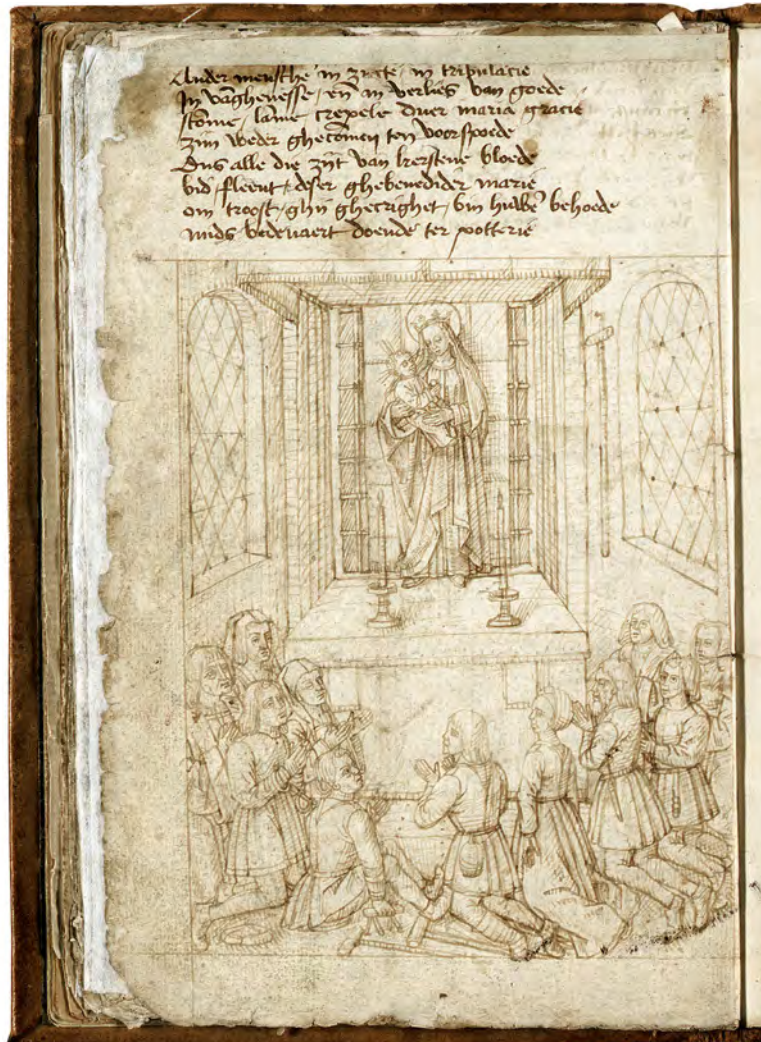 Ander mensche in zucte, in tribulacie
In vanghenesse, en in verlies van goede
stome, lame crepele duer maria gracie
zijn weder ghecomen ten voorspoede
Dus alle die zijt van kerstene bloede
bid, fleent, deser ghebenedider marie
om troost, ghij ghecrighet, bin huwe behoede
mids bedevaert doende ter potterie